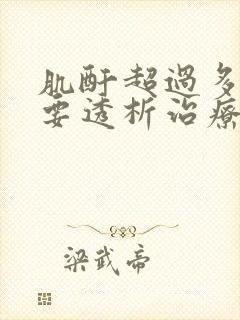 肌酐超過多
要透析治療
梁武帝